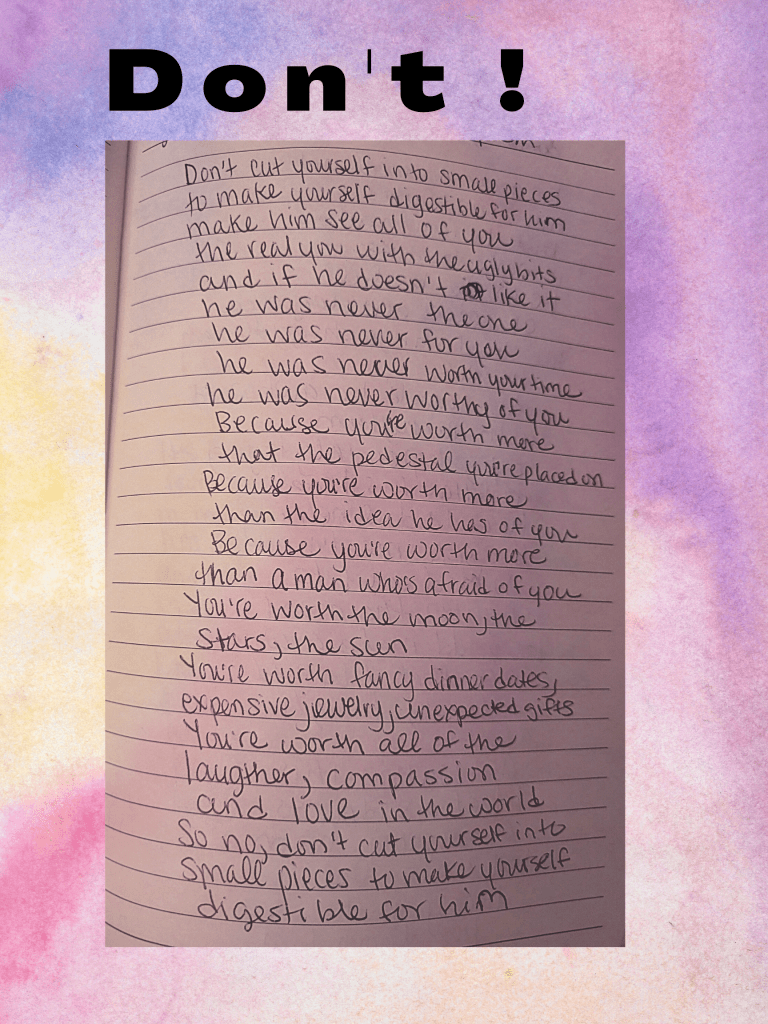 Don't !
Don't cut yourself into small pieces
to make yourself digestible for him
make him see all of you
the real you with the ugly bits
and if he doesn't like it
he was never the one
he was never for you
he was never worth your time
he was never worthy of you
Because you're worth more
that the pedestal you're placed on
Because you're worth more
than the idea he has of you
Because you're worth more
than a man who's afraid of you
You're worth the moon, the
stars, the sun
You're worth fancy dinner dates,
expensive jewelry, unexpected gifts
You're worth all of the
laugther, compassion
and love in the world
So no, don't cut yourself into
small pieces to make yourself
digestible for him